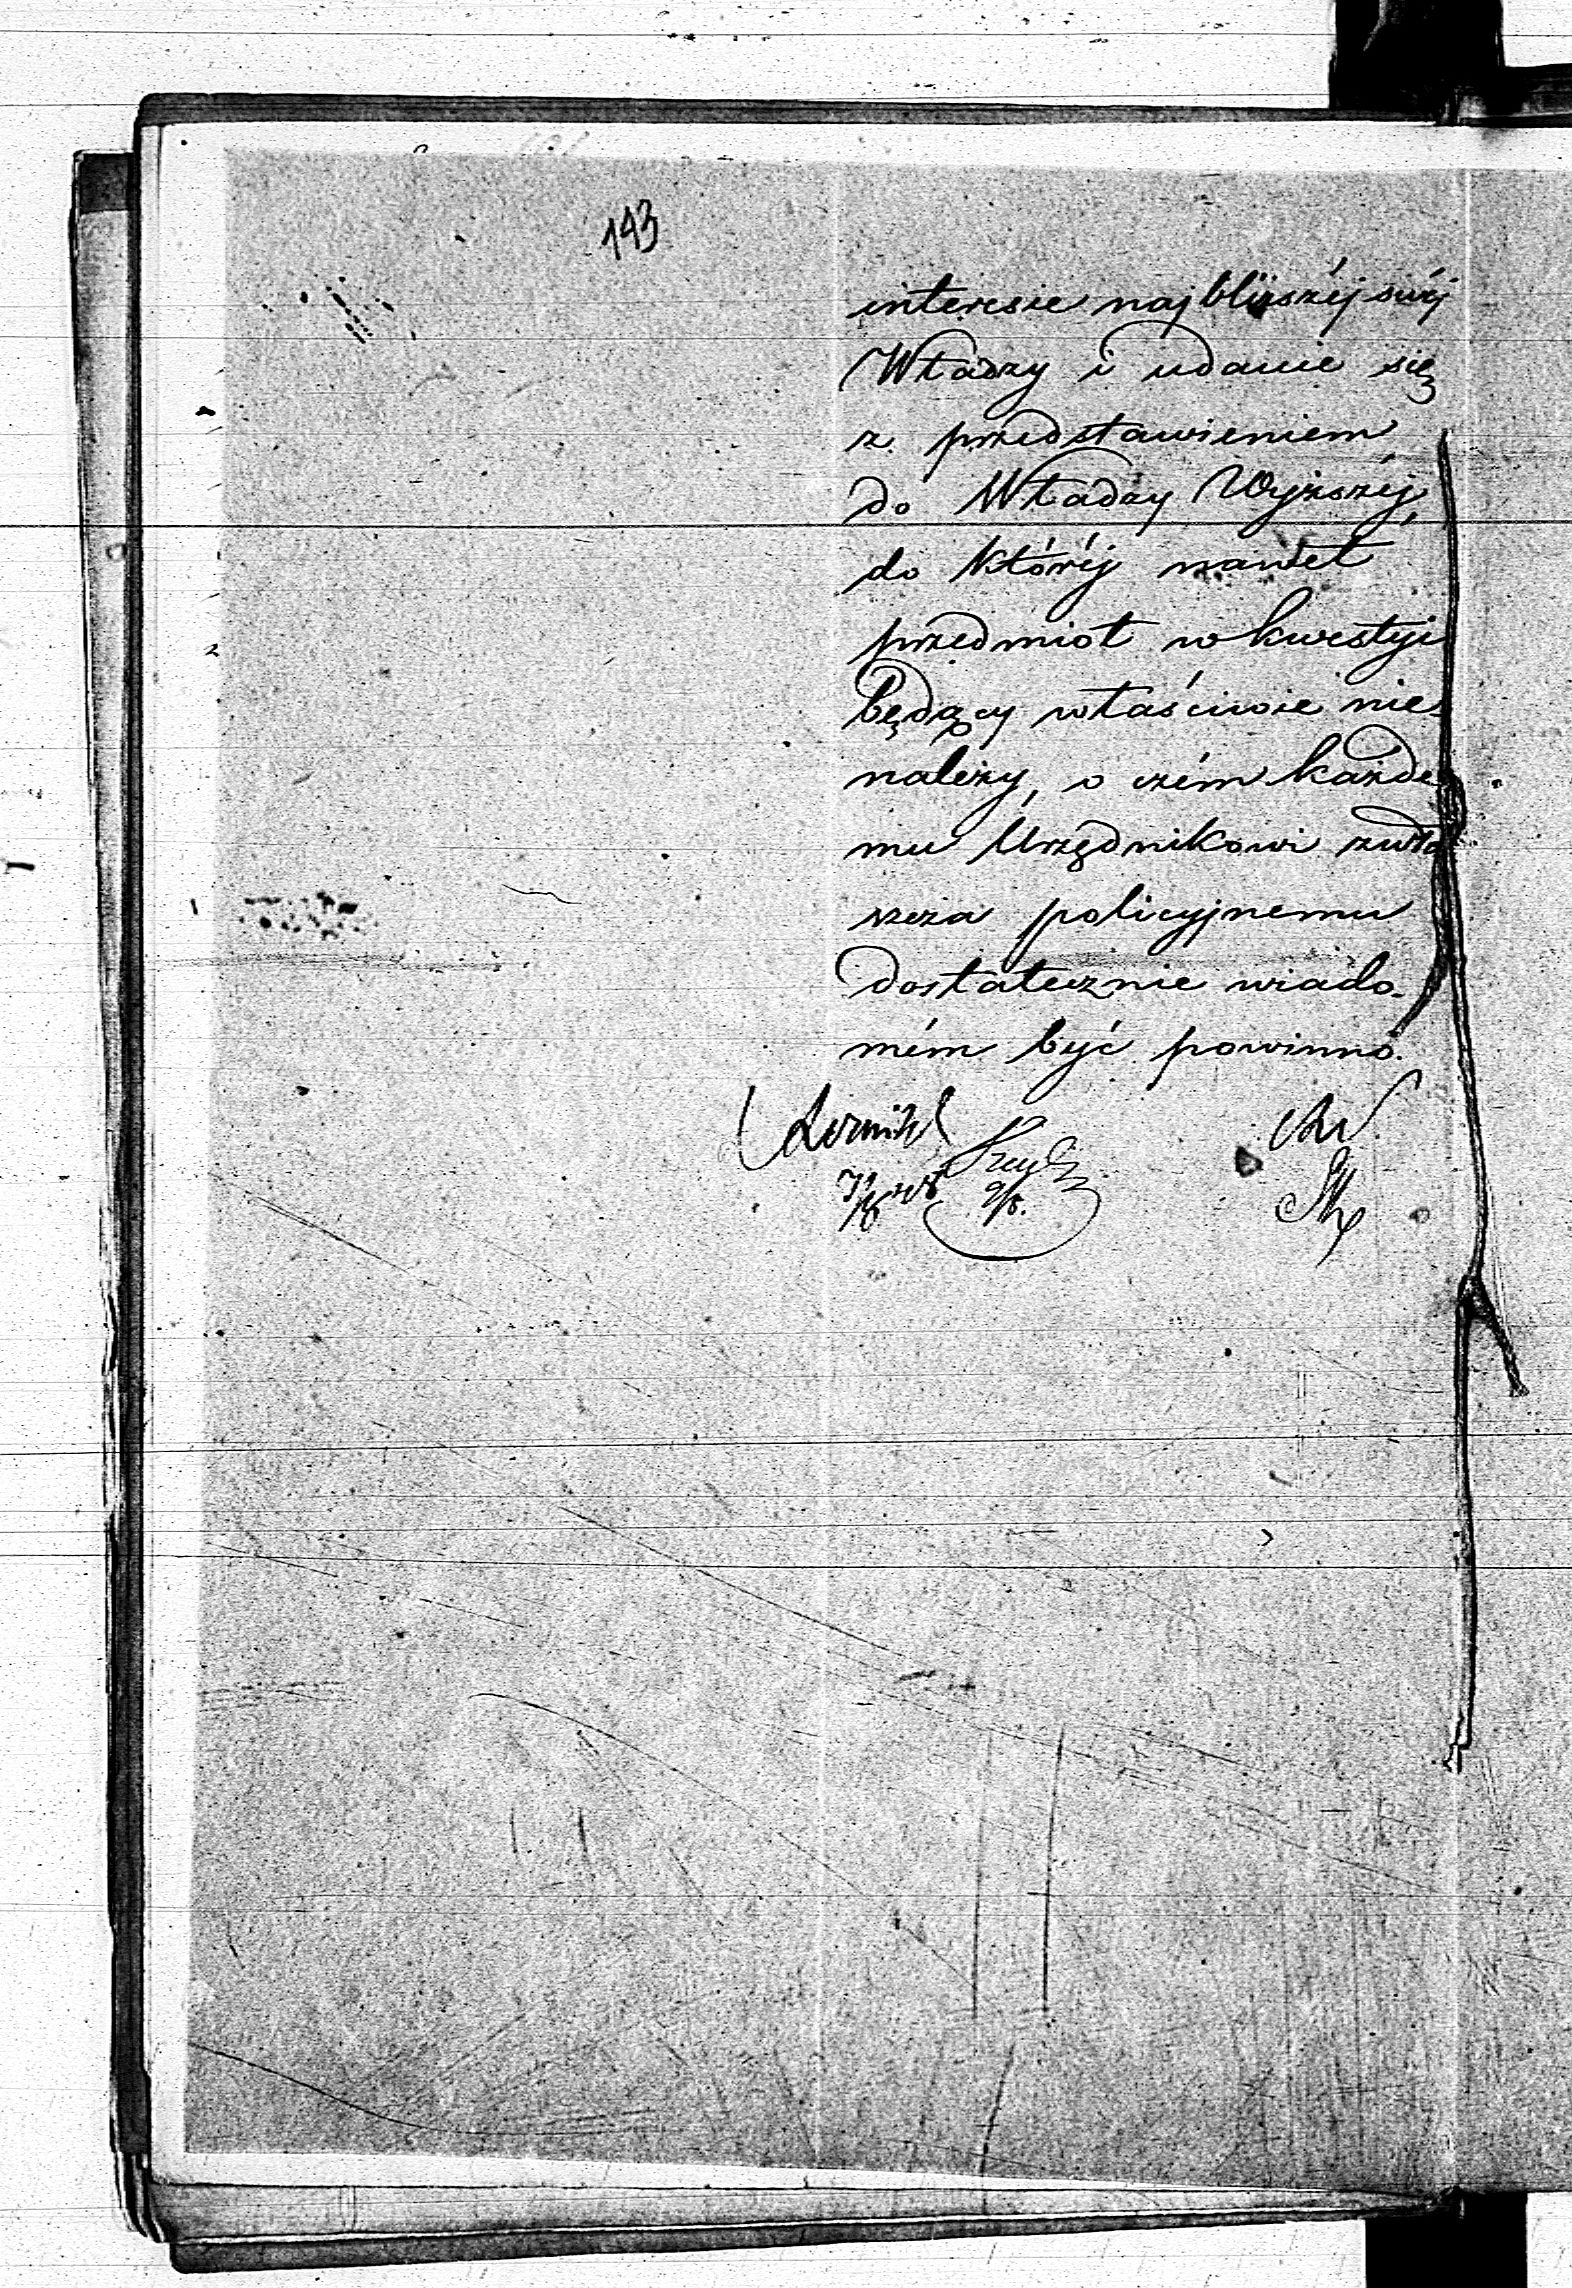 143
interesie najbliższéj swéj
Władzy i udanie się
z przedstawieniem
do Władzy Wyższéj,
do któréj nawet
przedmiot w kwestyi
będący właściwie nie
należy, o czém każde
mu Urzędnikowi zwła
szcza policyjnemu
dostatecznie wiado-
mém być powinno.